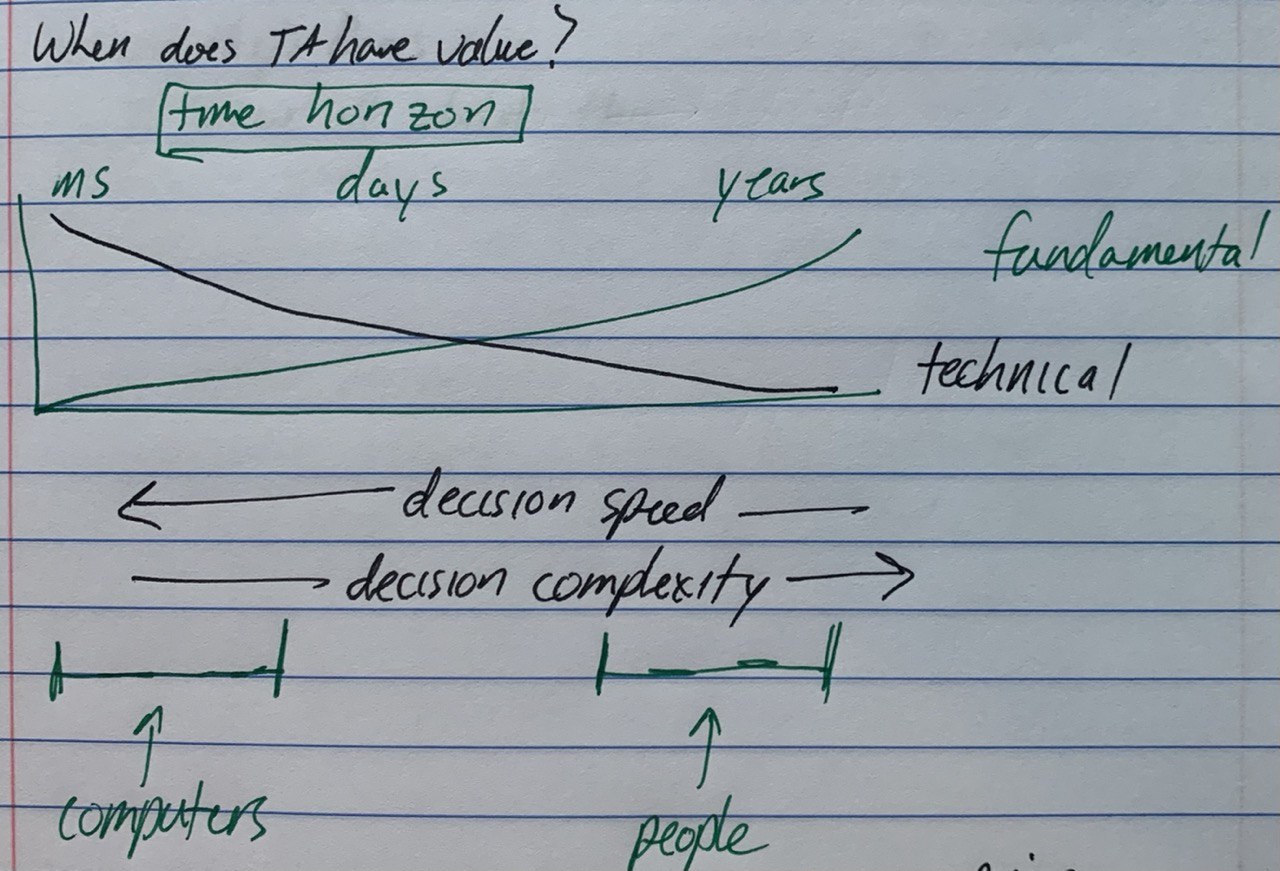 When does TA have value?
time horizon
ms days years
fundamental
technical
decision speed
decision complexity
computers
people